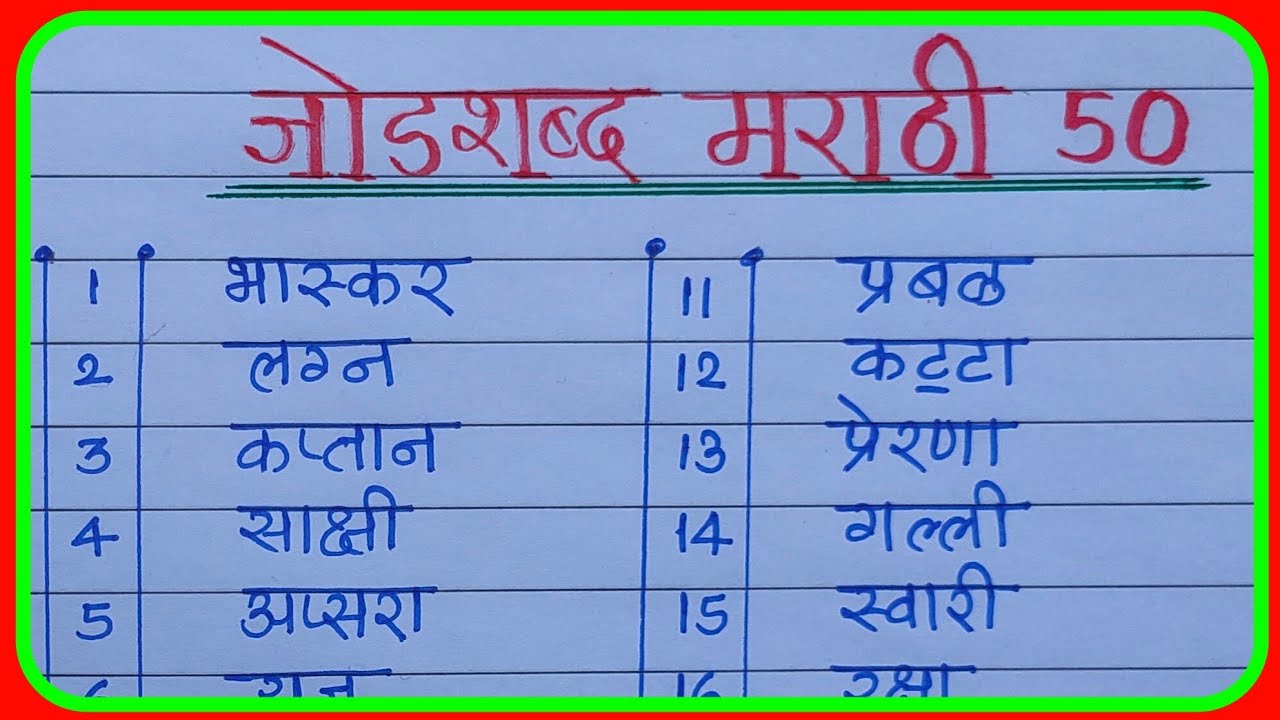 जोडशब्द मराठी 50
1 भास्कर 11 प्रबळ
2 लग्न 12 कट्टा
3 कप्तान 13 प्रेरणा
4 साक्षी 14 गल्ली
5 अप्सरा 15 स्वारी
16 रक्षा